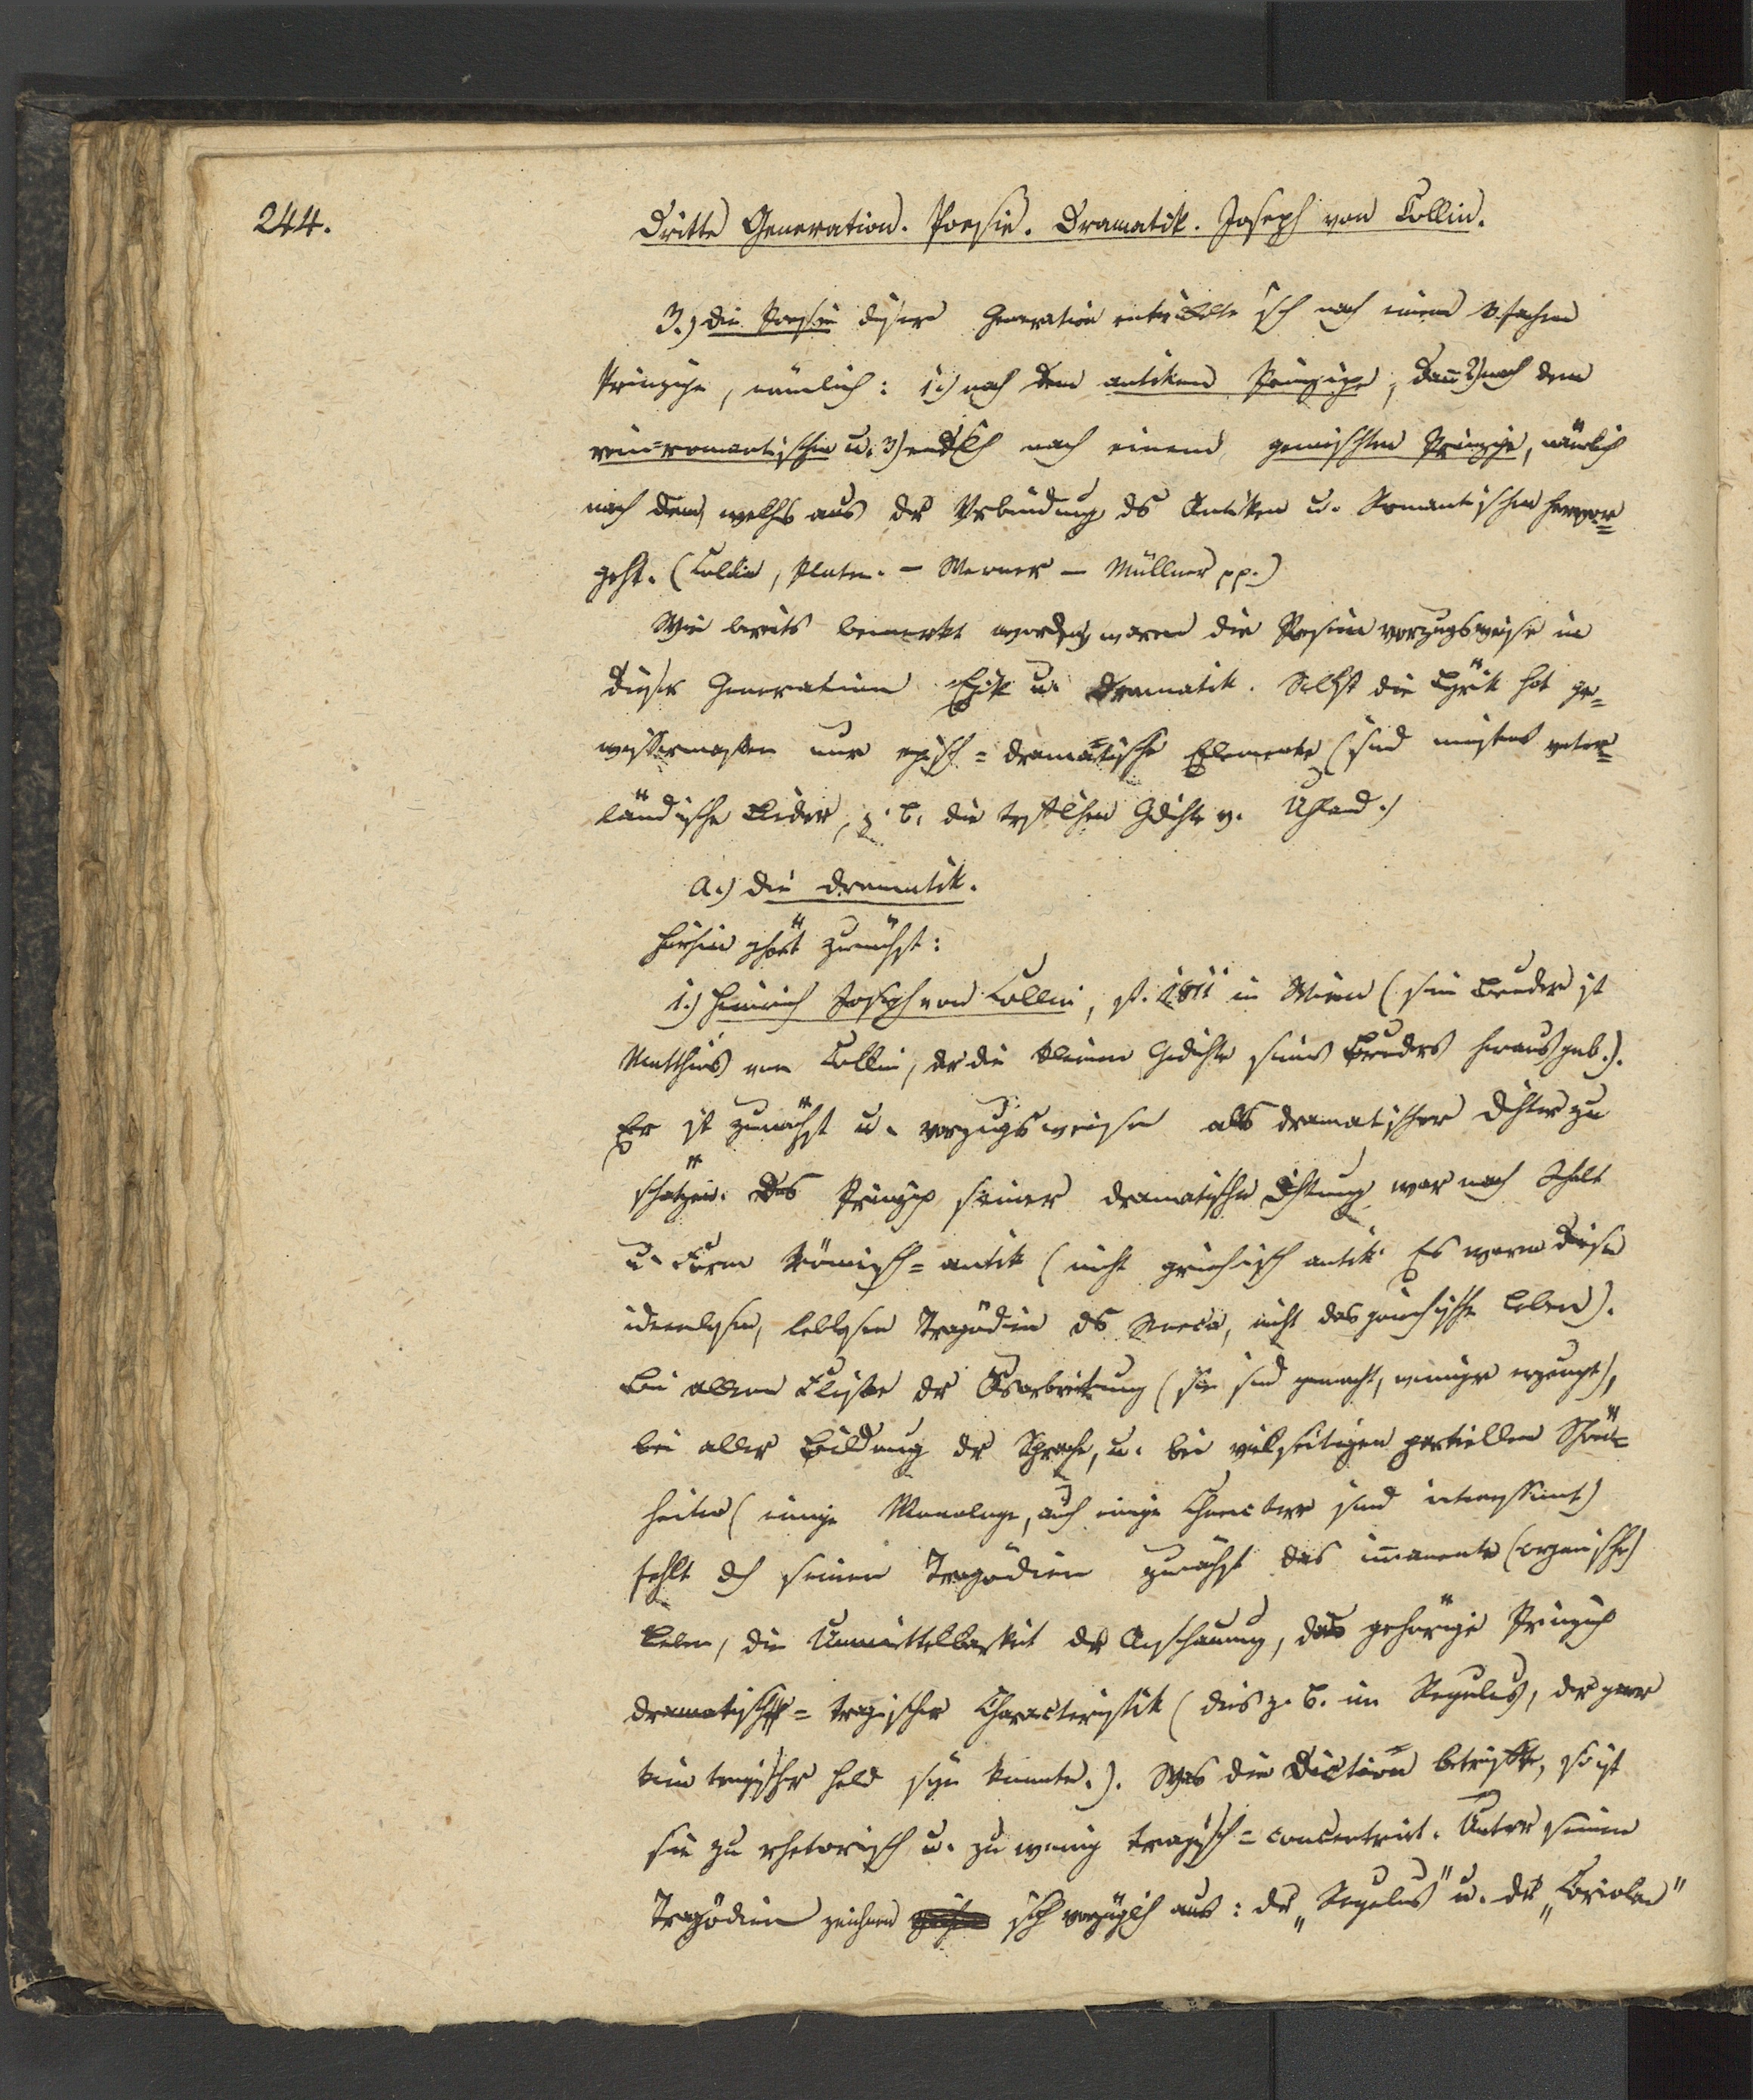 244.
Dritte Generation. Poesie. Dramatik. Joseph von Collin.
3.) die Poesie dieser Generation entwickelte sich nach einem 3fachen
Prinzipe, nämlich: 1.) nach dem antiken Prinzipe, dann 2) nach dem
rein=romantischen u. 3) endlich nach einem gemischten Prinzipe, nämlich
nach dem, welches aus der Verbindung des Antiken u. Romantischen hervor=
geht. (Collin, Platen. – Werner – Müllner pp.)
Wie bereits bemerkt worden, waren die Poesien vorzugsweise in
dieser Generation Epik u. Dramatik. Selbst die Lyrik hat ge=
wissermaßen nur episch=dramatische Elemente (sind meistens vater=
ländische Lieder, z. B. die trefflichen Gedichte v. Uhland.)
a.) die Dramatik.
Hierhin gehört zunächst:
1.) Heinrich Joseph von Collin, st. 1811 in Wien (sein Bruder ist
Matthias von Collin, der die kleinen Gedichte seines Bruders herausgab.).
Er ist zunächst u. vorzugsweise als dramatischer Dichter zu
schätzen. Das Prinzip seiner dramatischen Dichtung war nach Gehalt
u. Form Römisch=antik (nicht griechisch antik. Es waren diese
ideenlosen, leblosen Tragödien des Seneca, nicht das griechische Leben).
Bei allem Fleiße der Ausarbeitung (sie sind gemacht, weniger erzeugt),
bei aller Bildung der Sprache, u. bei vielseitigen partiellen Schön=
heiten (einige Monologe, auch einige Charactere sind interessant)
fehlt doch seinen Tragödien zunächst das immanente (organische)
Leben, die Unmittelbarkeit der Anschauung, das gehörige Prinzip
dramatisch=tragischer Characteristik (dies z. B. im Regulus, der gar
kein tragischer Held seyn konnte.). Was die Diction betrifft, so ist
sie zu rhetorisch u. zu wenig tragisch=concentrirt. Unter seinen
Tragödien zeichnen sich vorzüglich aus: der „Regulus" u. der „Coriolan"